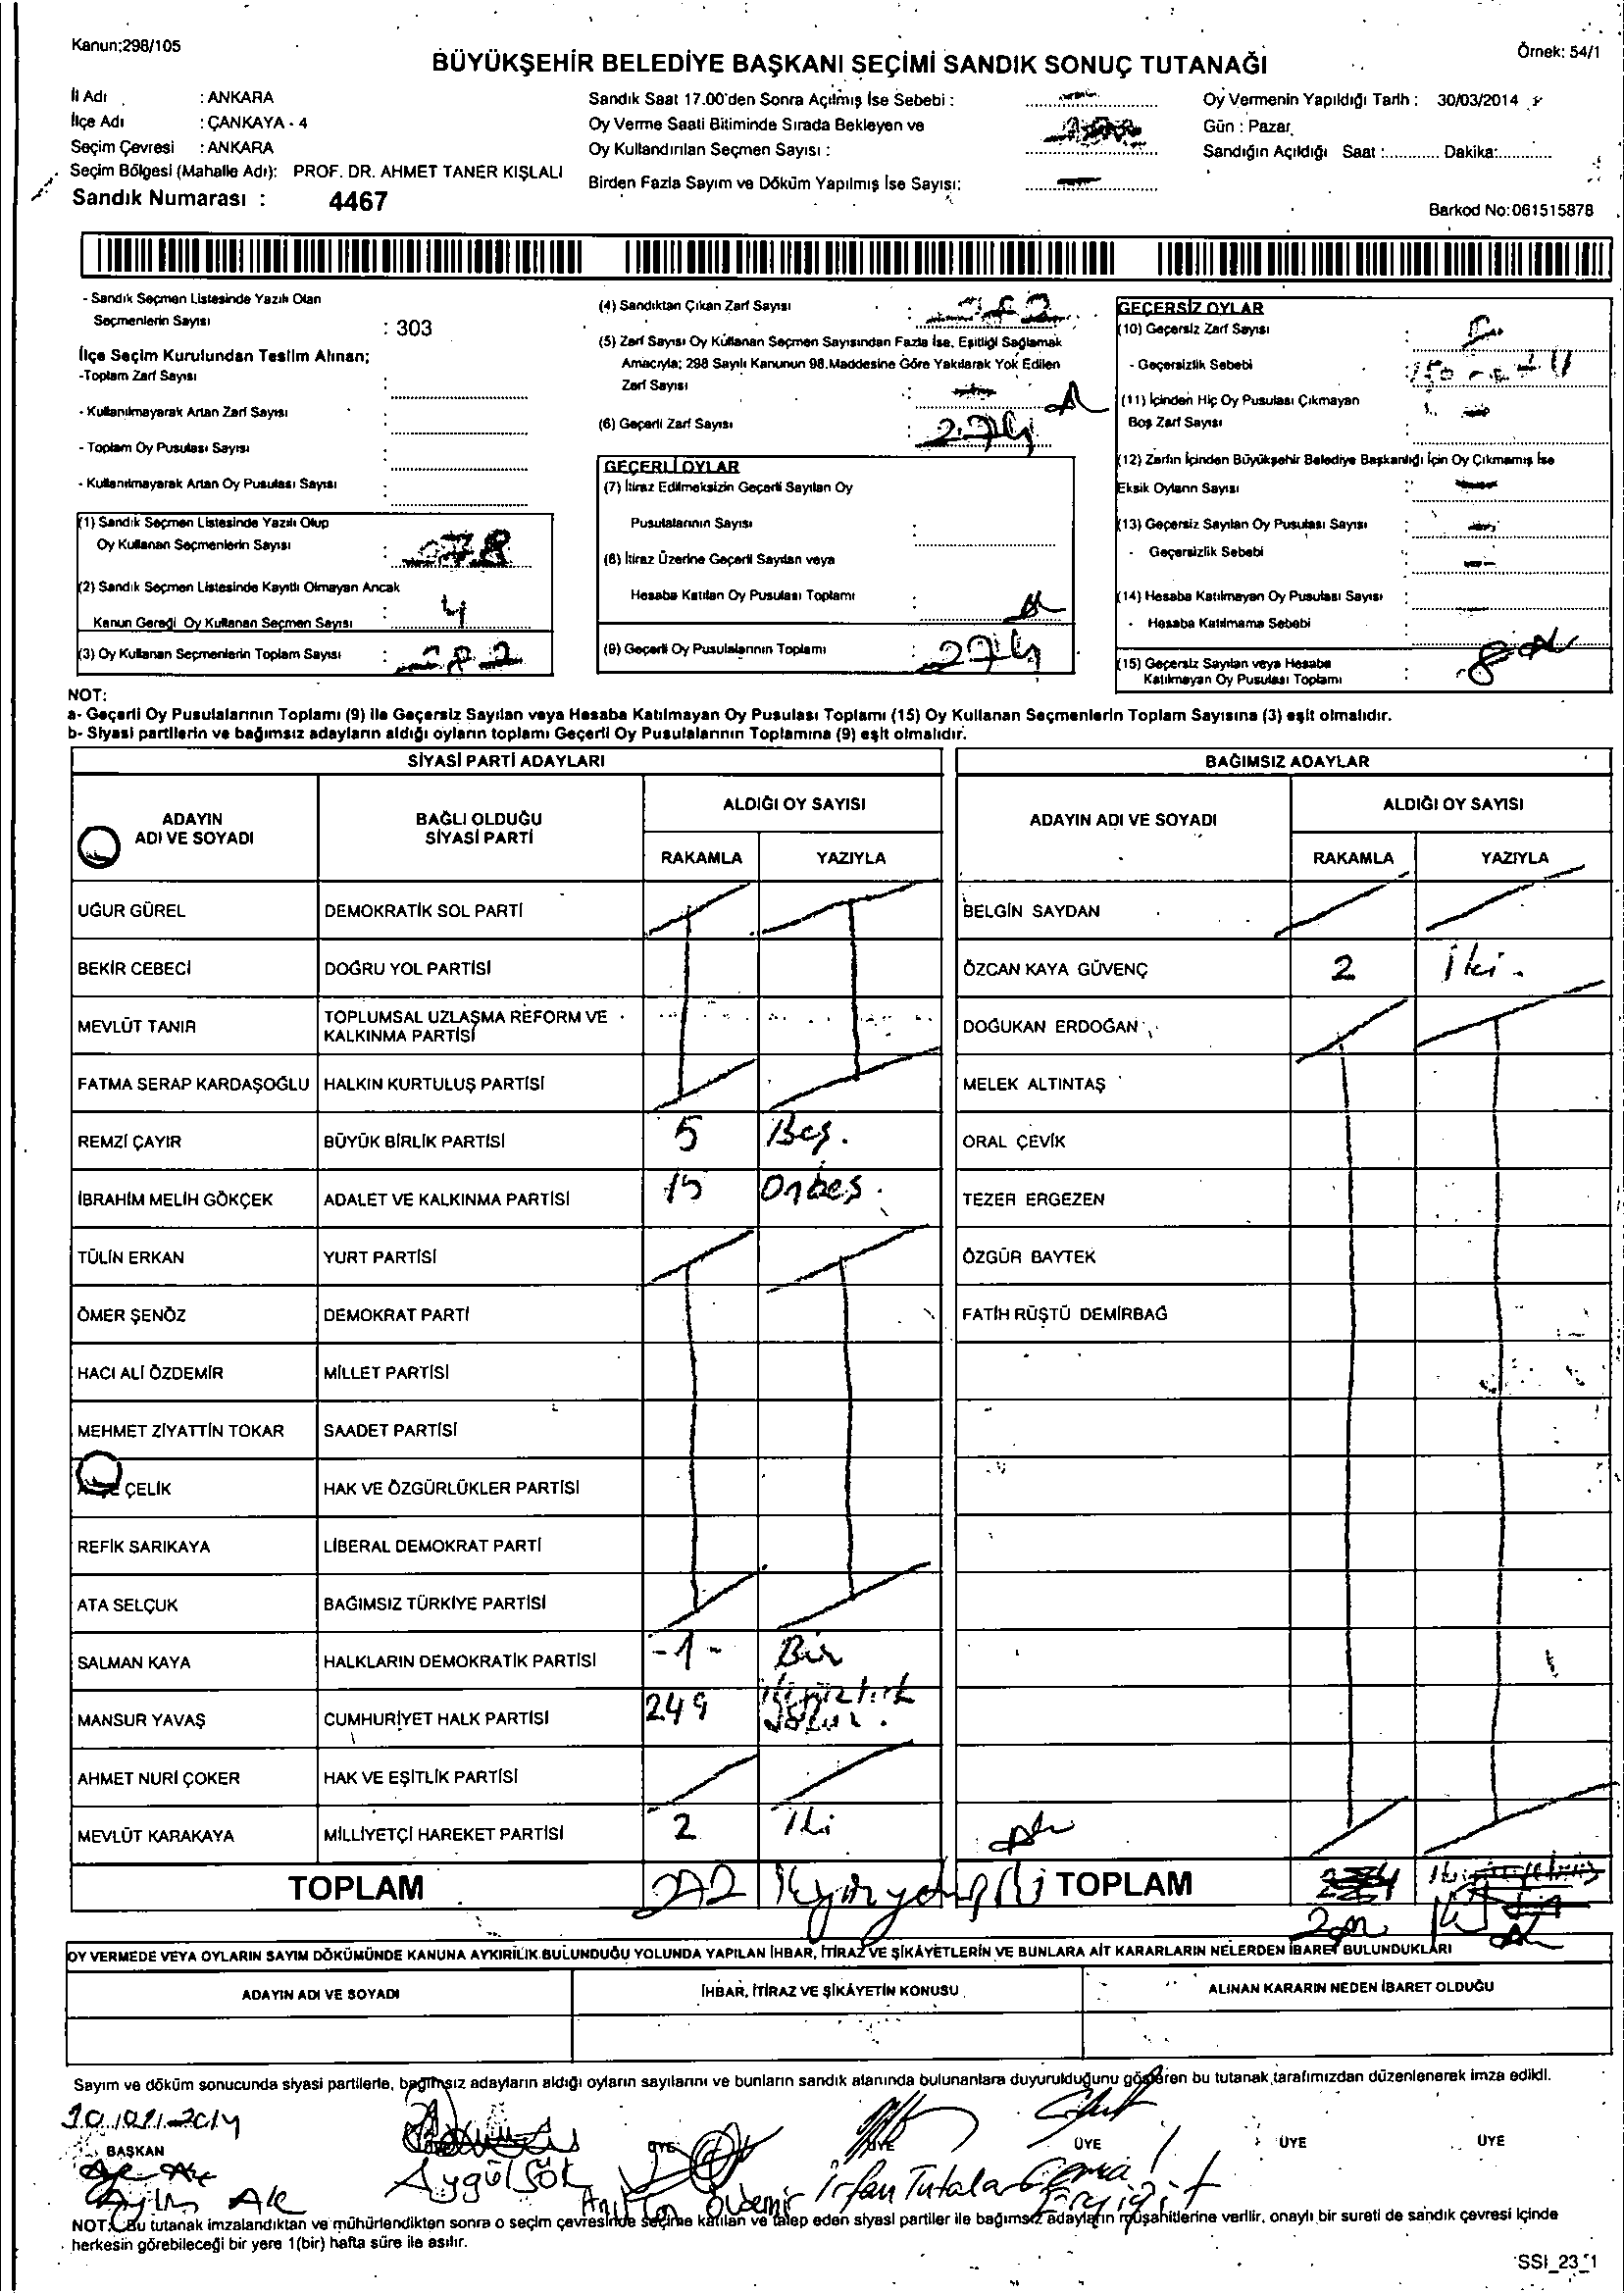 Kanun;298/105
Örnek: 54/1
BÜYÜKŞEHİR BELEDİYE BAŞKANI SEÇİMİ SANDIK SONUÇ TUTANAĞI
İl Adı : ANKARA
İlçe Adı : ÇANKAYA - 4
Seçim Çevresi : ANKARA
Seçim Bölgesi (Mahalle Adı): PROF. DR. AHMET TANER KIŞLALI
Sandık Numarası : 4467
Sandık Saat 17.00'den Sonra Açılmış İse Sebebi :
Oy Verme Saati Bitiminde Sırada Bekleyen ve
Oy Kullandırılan Seçmen Sayısı :
Birden Fazla Sayım ve Döküm Yapılmış İse Sayısı:
Oy Vermenin Yapıldığı Tarih : 30/03/2014
Gün : Pazar
Sandığın Açıldığı Saat :........... Dakika:...........
Barkod No:061515878
- Sandık Seçmen Listesinde Yazılı Olan
Seçmenlerin Sayısı : 303
İlçe Seçim Kurulundan Teslim Alınan;
-Toplam Zarf Sayısı :
- Kullanılmayarak Artan Zarf Sayısı :
- Toplam Oy Pusulası Sayısı :
- Kullanılmayarak Artan Oy Pusulası Sayısı :
(1) Sandık Seçmen Listesinde Yazılı Olup
Oy Kullanan Seçmenlerin Sayısı : 278
(2) Sandık Seçmen Listesinde Kayıtlı Olmayan Ancak
Kanun Gereği Oy Kullanan Seçmen Sayısı : 4
(3) Oy Kullanan Seçmenlerin Toplam Sayısı : 282
(4) Sandıktan Çıkan Zarf Sayısı : 282
(5) Zarf Sayısı Oy Kullanan Seçmen Sayısından Fazla İse, Eşitliği Sağlamak
Amacıyla; 298 Sayılı Kanunun 98.Maddesine Göre Yakılarak Yok Edilen
Zarf Sayısı :
(6) Geçerli Zarf Sayısı : 274
GEÇERLİ OYLAR
(7) İtiraz Edilmeksizin Geçerli Sayılan Oy
Pusulalarının Sayısı :
(8) İtiraz Üzerine Geçerli Sayılan veya
Hesaba Katılan Oy Pusulası Toplamı :
(9) Geçerli Oy Pusulalarının Toplamı : 274
GEÇERSİZ OYLAR
(10) Geçersiz Zarf Sayısı :
- Geçersizlik Sebebi :
(11) İçinden Hiç Oy Pusulası Çıkmayan
Boş Zarf Sayısı :
(12) Zarfın İçinden Büyükşehir Belediye Başkanlığı İçin Oy Çıkmamış İse
Eksik Oyların Sayısı :
(13) Geçersiz Sayılan Oy Pusulası Sayısı :
- Geçersizlik Sebebi :
(14) Hesaba Katılmayan Oy Pusulası Sayısı :
- Hesaba Katılmama Sebebi
(15) Geçersiz Sayılan veya Hesaba
Katılmayan Oy Pusulası Toplamı : 8
NOT:
a- Geçerli Oy Pusulalarının Toplamı (9) ile Geçersiz Sayılan veya Hesaba Katılmayan Oy Pusulası Toplamı (15) Oy Kullanan Seçmenlerin Toplam Sayısına (3) eşit olmalıdır.
b- Siyasi partilerin ve bağımsız adayların aldığı oyların toplamı Geçerli Oy Pusulalarının Toplamına (9) eşit olmalıdır.
SİYASİ PARTİ ADAYLARI
ADAYIN ADI VE SOYADI
BAĞLI OLDUĞU SİYASİ PARTİ
ALDIĞI OY SAYISI
RAKAMLA YAZIYLA
UĞUR GÜREL DEMOKRATİK SOL PARTİ
BEKİR CEBECİ DOĞRU YOL PARTİSİ
MEVLÜT TANIR TOPLUMSAL UZLAŞMA REFORM VE
KALKINMA PARTİSİ
FATMA SERAP KARDAŞOĞLU HALKIN KURTULUŞ PARTİSİ
REMZİ ÇAYIR BÜYÜK BİRLİK PARTİSİ 5 Beş.
İBRAHİM MELİH GÖKÇEK ADALET VE KALKINMA PARTİSİ 15 Onbeş.
TÜLİN ERKAN YURT PARTİSİ
ÖMER ŞENÖZ DEMOKRAT PARTİ
HACI ALİ ÖZDEMİR MİLLET PARTİSİ
MEHMET ZİYATTİN TOKAR SAADET PARTİSİ
ÇELİK HAK VE ÖZGÜRLÜKLER PARTİSİ
REFİK SARIKAYA LİBERAL DEMOKRAT PARTİ
ATA SELÇUK BAĞIMSIZ TÜRKİYE PARTİSİ
SALMAN KAYA HALKLARIN DEMOKRATİK PARTİSİ -1- Bir
MANSUR YAVAŞ CUMHURİYET HALK PARTİSİ 249
AHMET NURİ ÇOKER HAK VE EŞİTLİK PARTİSİ
MEVLÜT KARAKAYA MİLLİYETÇİ HAREKET PARTİSİ 2 İki
TOPLAM 272
BAĞIMSIZ ADAYLAR
ADAYIN ADI VE SOYADI
ALDIĞI OY SAYISI
RAKAMLA YAZIYLA
BELGİN SAYDAN
ÖZCAN KAYA GÜVENÇ 2 İki.
DOĞUKAN ERDOĞAN
MELEK ALTINTAŞ
ORAL ÇEVİK
TEZER ERGEZEN
ÖZGÜR BAYTEK
FATİH RÜŞTÜ DEMİRBAĞ
TOPLAM 2
OY VERMEDE VEYA OYLARIN SAYIM DÖKÜMÜNDE KANUNA AYKIRILIK BULUNDUĞU YOLUNDA YAPILAN İHBAR, İTİRAZ VE ŞİKÂYETLERİN VE BUNLARA AİT KARARLARIN NELERDEN İBARET BULUNDUKLARI
ADAYIN ADI VE SOYADI
İHBAR, İTİRAZ VE ŞİKÂYETİN KONUSU
ALINAN KARARIN NEDEN İBARET OLDUĞU
Sayım ve döküm sonucunda siyasi partilerle, bağımsız adayların aldığı oyların sayılarını ve bunların sandık alanında bulunanlara duyurulduğunu gösteren bu tutanak tarafımızdan düzenlenerek imza edildi.
BAŞKAN ÜYE ÜYE ÜYE ÜYE ÜYE
Aygül Şok
İrfan Tutala
NOT: Bu tutanak imzalandıktan ve mühürlendikten sonra o seçim çevresinde seçime katılan ve talep eden siyasi partiler ile bağımsız adayların müşahitlerine verilir, onaylı bir sureti de sandık çevresi içinde
herkesin görebileceği bir yere 1(bir) hafta süre ile asılır.
SSI_23_1